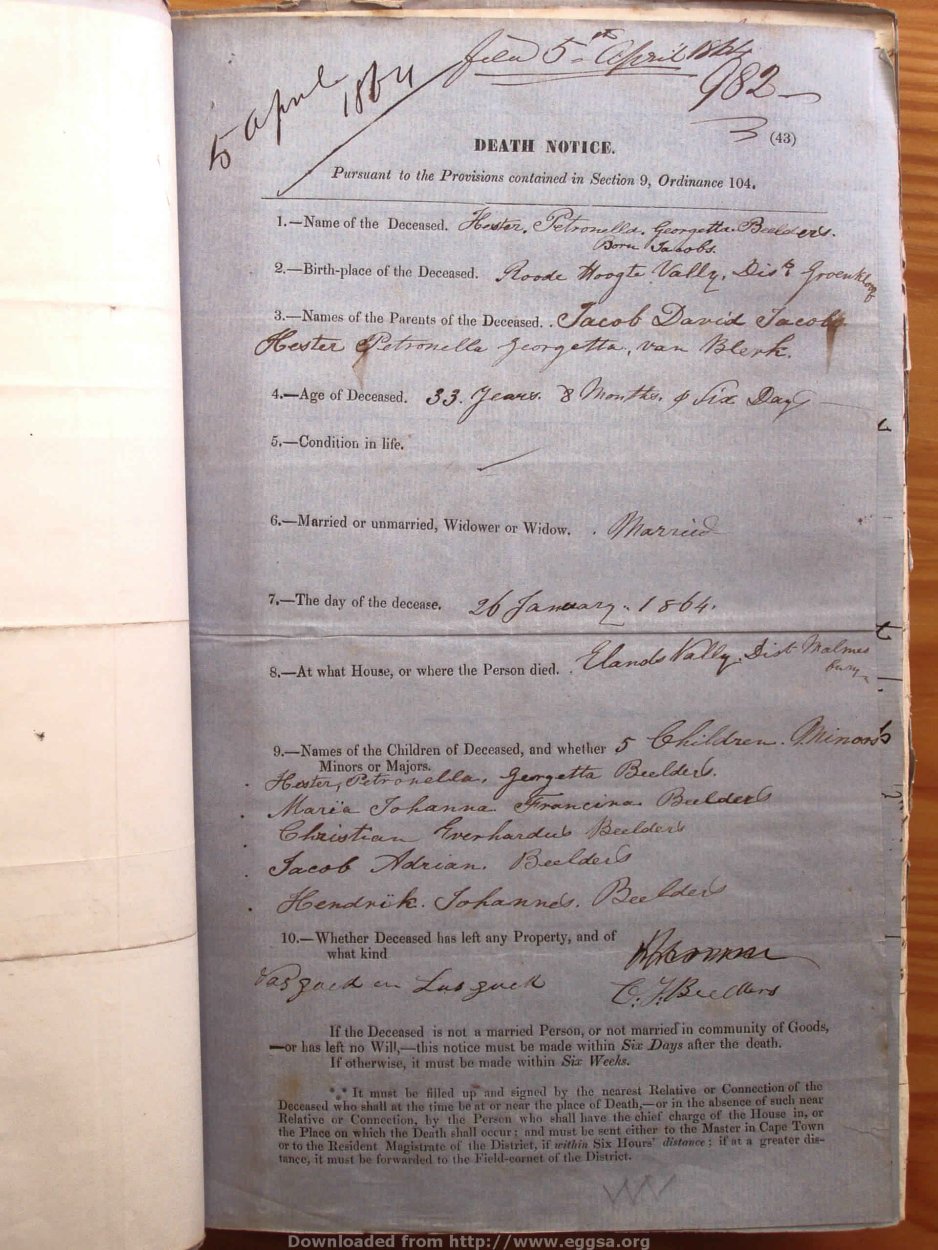 filed 5th April 1864
5 april 1864
982
(43)
DEATH NOTICE.
Pursuant to the Provisions contained in Section 9, Ordinance 104.
1.—Name of the Deceased. Hester, Petronella, Georgetta Beelders.
Born Jacobs.
2.—Birth-place of the Deceased. Roode Hoogte Vally, Dist Groenkloof
3.—Names of the Parents of the Deceased. . Jacob David Jacobs
Hester Petronella Georgetta, van Blerk.
4.—Age of Deceased. 33 Years. 8 Months. & Six Days
5.—Condition in life.
6.—Married or unmarried, Widower or Widow. . Married
7.—The day of the decease. 26 January. 1864.
8.—At what House, or where the Person died. . Elands Vally, Dist Malmesbury
9.—Names of the Children of Deceased, and whether 5 Children. Minors
Minors or Majors.
Hester, Petronella, Georgetta Beelders.
Maria Johanna Francina Beelders
Christian Everhardus Beelders
Jacob Adrian. Beelders
Hendrik. Johannes. Beelders
10.—Whether Deceased has left any Property, and of
what kind
Vasgoed en Losgoed
C. J. Beelders
If the Deceased is not a married Person, or not married in community of Goods,
—or has left no Will,—this notice must be made within Six Days after the death.
If otherwise, it must be made within Six Weeks.
*** It must be filled up and signed by the nearest Relative or Connection of the
Deceased who shall at the time be at or near the place of Death,—or in the absence of such near
Relative or Connection, by the Person who shall have the chief charge of the House in, or
the Place on which the Death shall occur; and must be sent either to the Master in Cape Town
or to the Resident Magistrate of the District, if within Six Hours' distance; if at a greater dis-
tance, it must be forwarded to the Field-cornet of the District.
Downloaded from http://www.eggsa.org